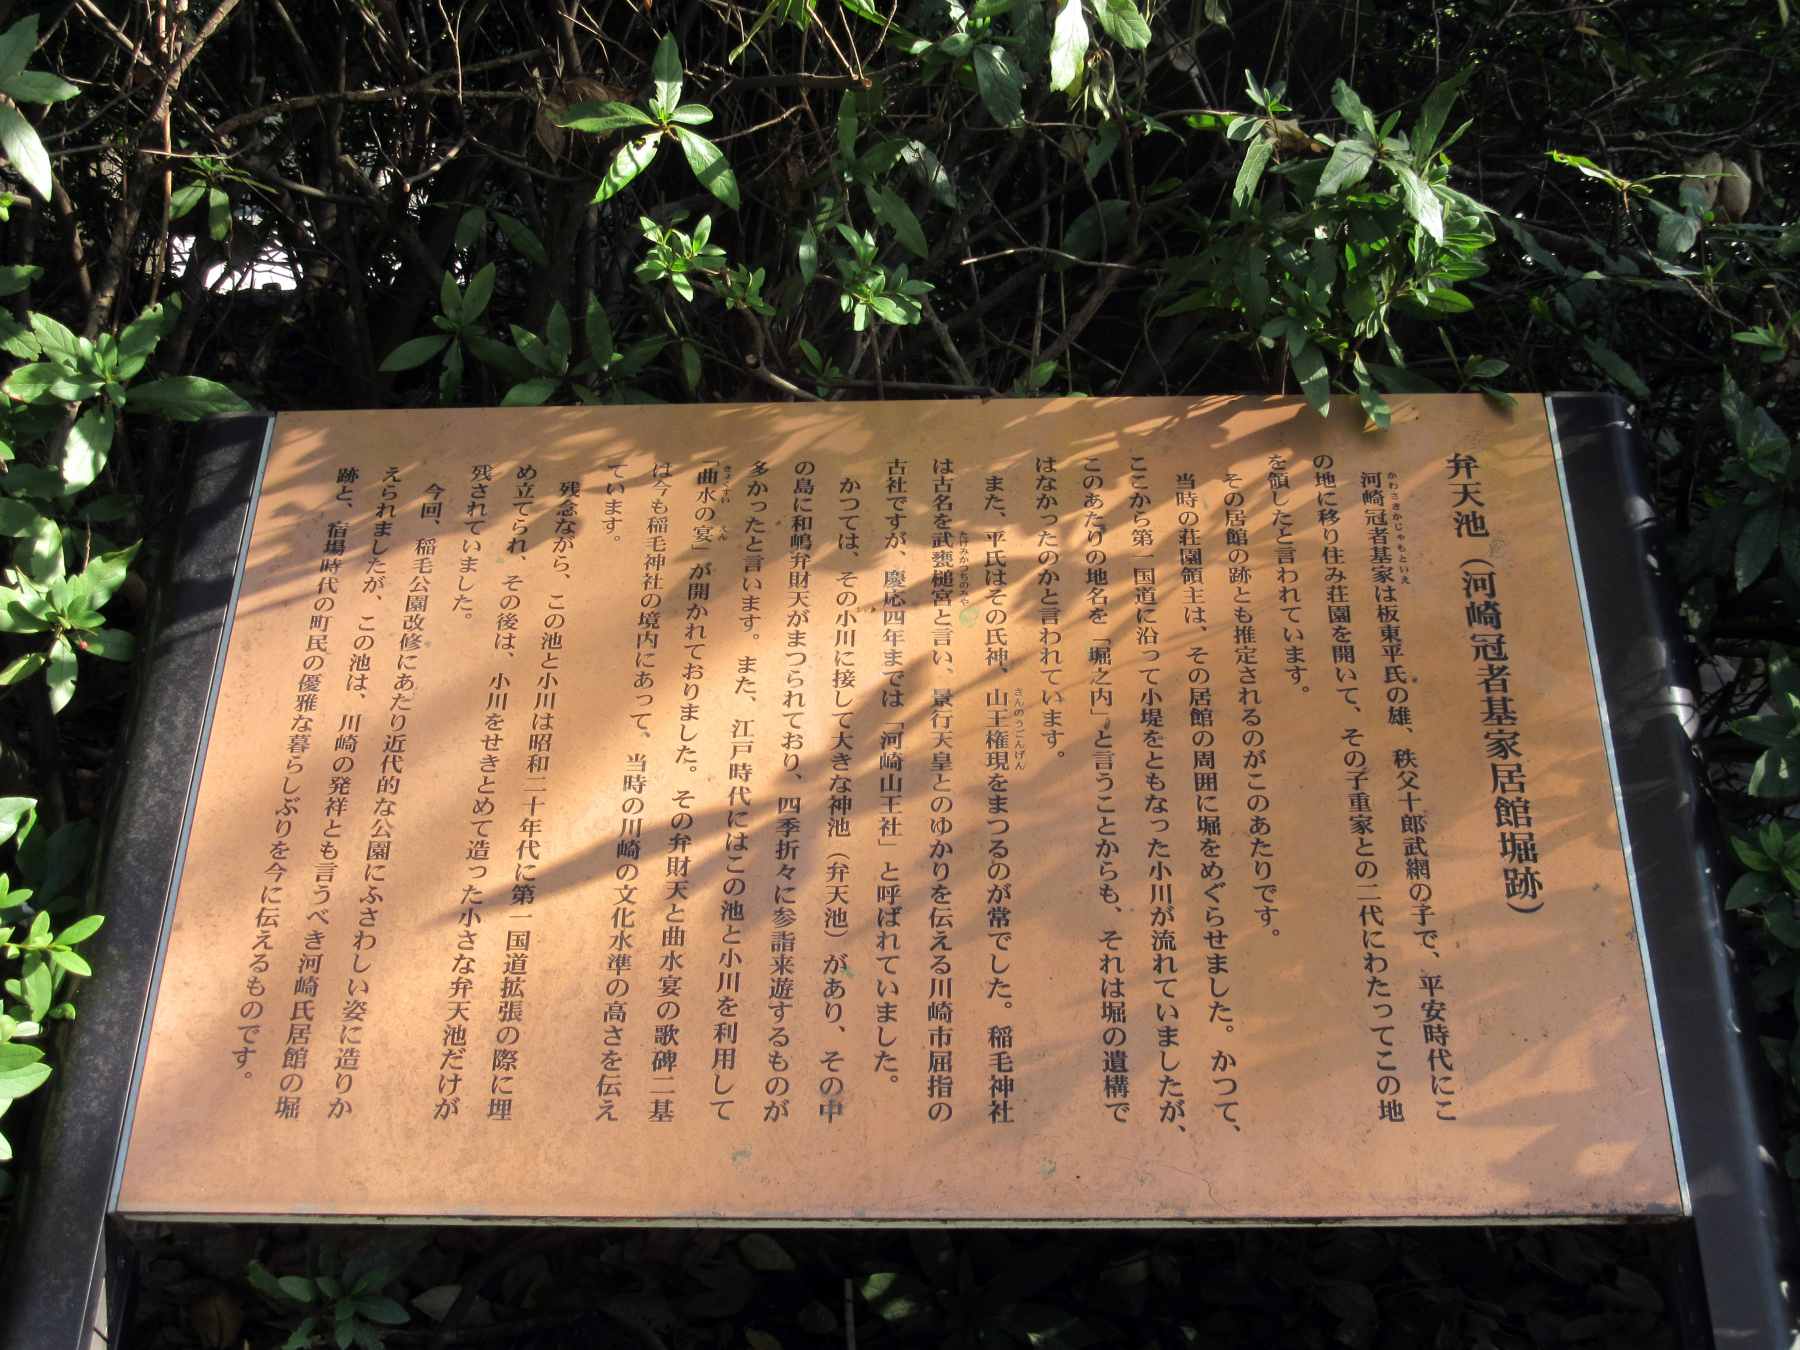 弁天池（河崎冠者基家居館堀跡）
河崎冠者基家は板東平氏の雄、秩父十郎武綱の子で、平安時代にこ
の地に移り住み荘園を開いて、その子重家との二代にわたってこの地
を領したと言われています。
その居館の跡とも推定されるのがこのあたりです。
当時の荘園領主は、その居館の周囲に堀をめぐらせました。かつて、
ここから第一国道に沿って小堤をともなった小川が流れていましたが、
このあたりの地名を「堀之内」と言うことからも、それは堀の遺構で
はなかったのかと言われています。
また、平氏はその氏神、山王権現をまつるのが常でした。稲毛神社
は古名を武甕槌宮と言い、景行天皇とのゆかりを伝える川崎市屈指の
古社ですが、慶応四年までは「河崎山王社」と呼ばれていました。
かつては、その小川に接して大きな神池（弁天池）があり、その中
の島に和嶋弁財天がまつられており、四季折々に参詣来遊するものが
多かったと言います。また、江戸時代にはこの池と小川を利用して
「曲水の宴」が開かれておりました。その弁財天と曲水宴の歌碑二基
は今も稲毛神社の境内にあって、当時の川崎の文化水準の高さを伝え
ています。
残念ながら、この池と小川は昭和二十年代に第一国道拡張の際に埋
め立てられ、その後は、小川をせきとめて造った小さな弁天池だけが
残されていました。
今回、稲毛公園改修にあたり近代的な公園にふさわしい姿に造りか
えられましたが、この池は、川崎の発祥とも言うべき河崎氏居館の堀
跡と、宿場時代の町民の優雅な暮らしぶりを今に伝えるものです。